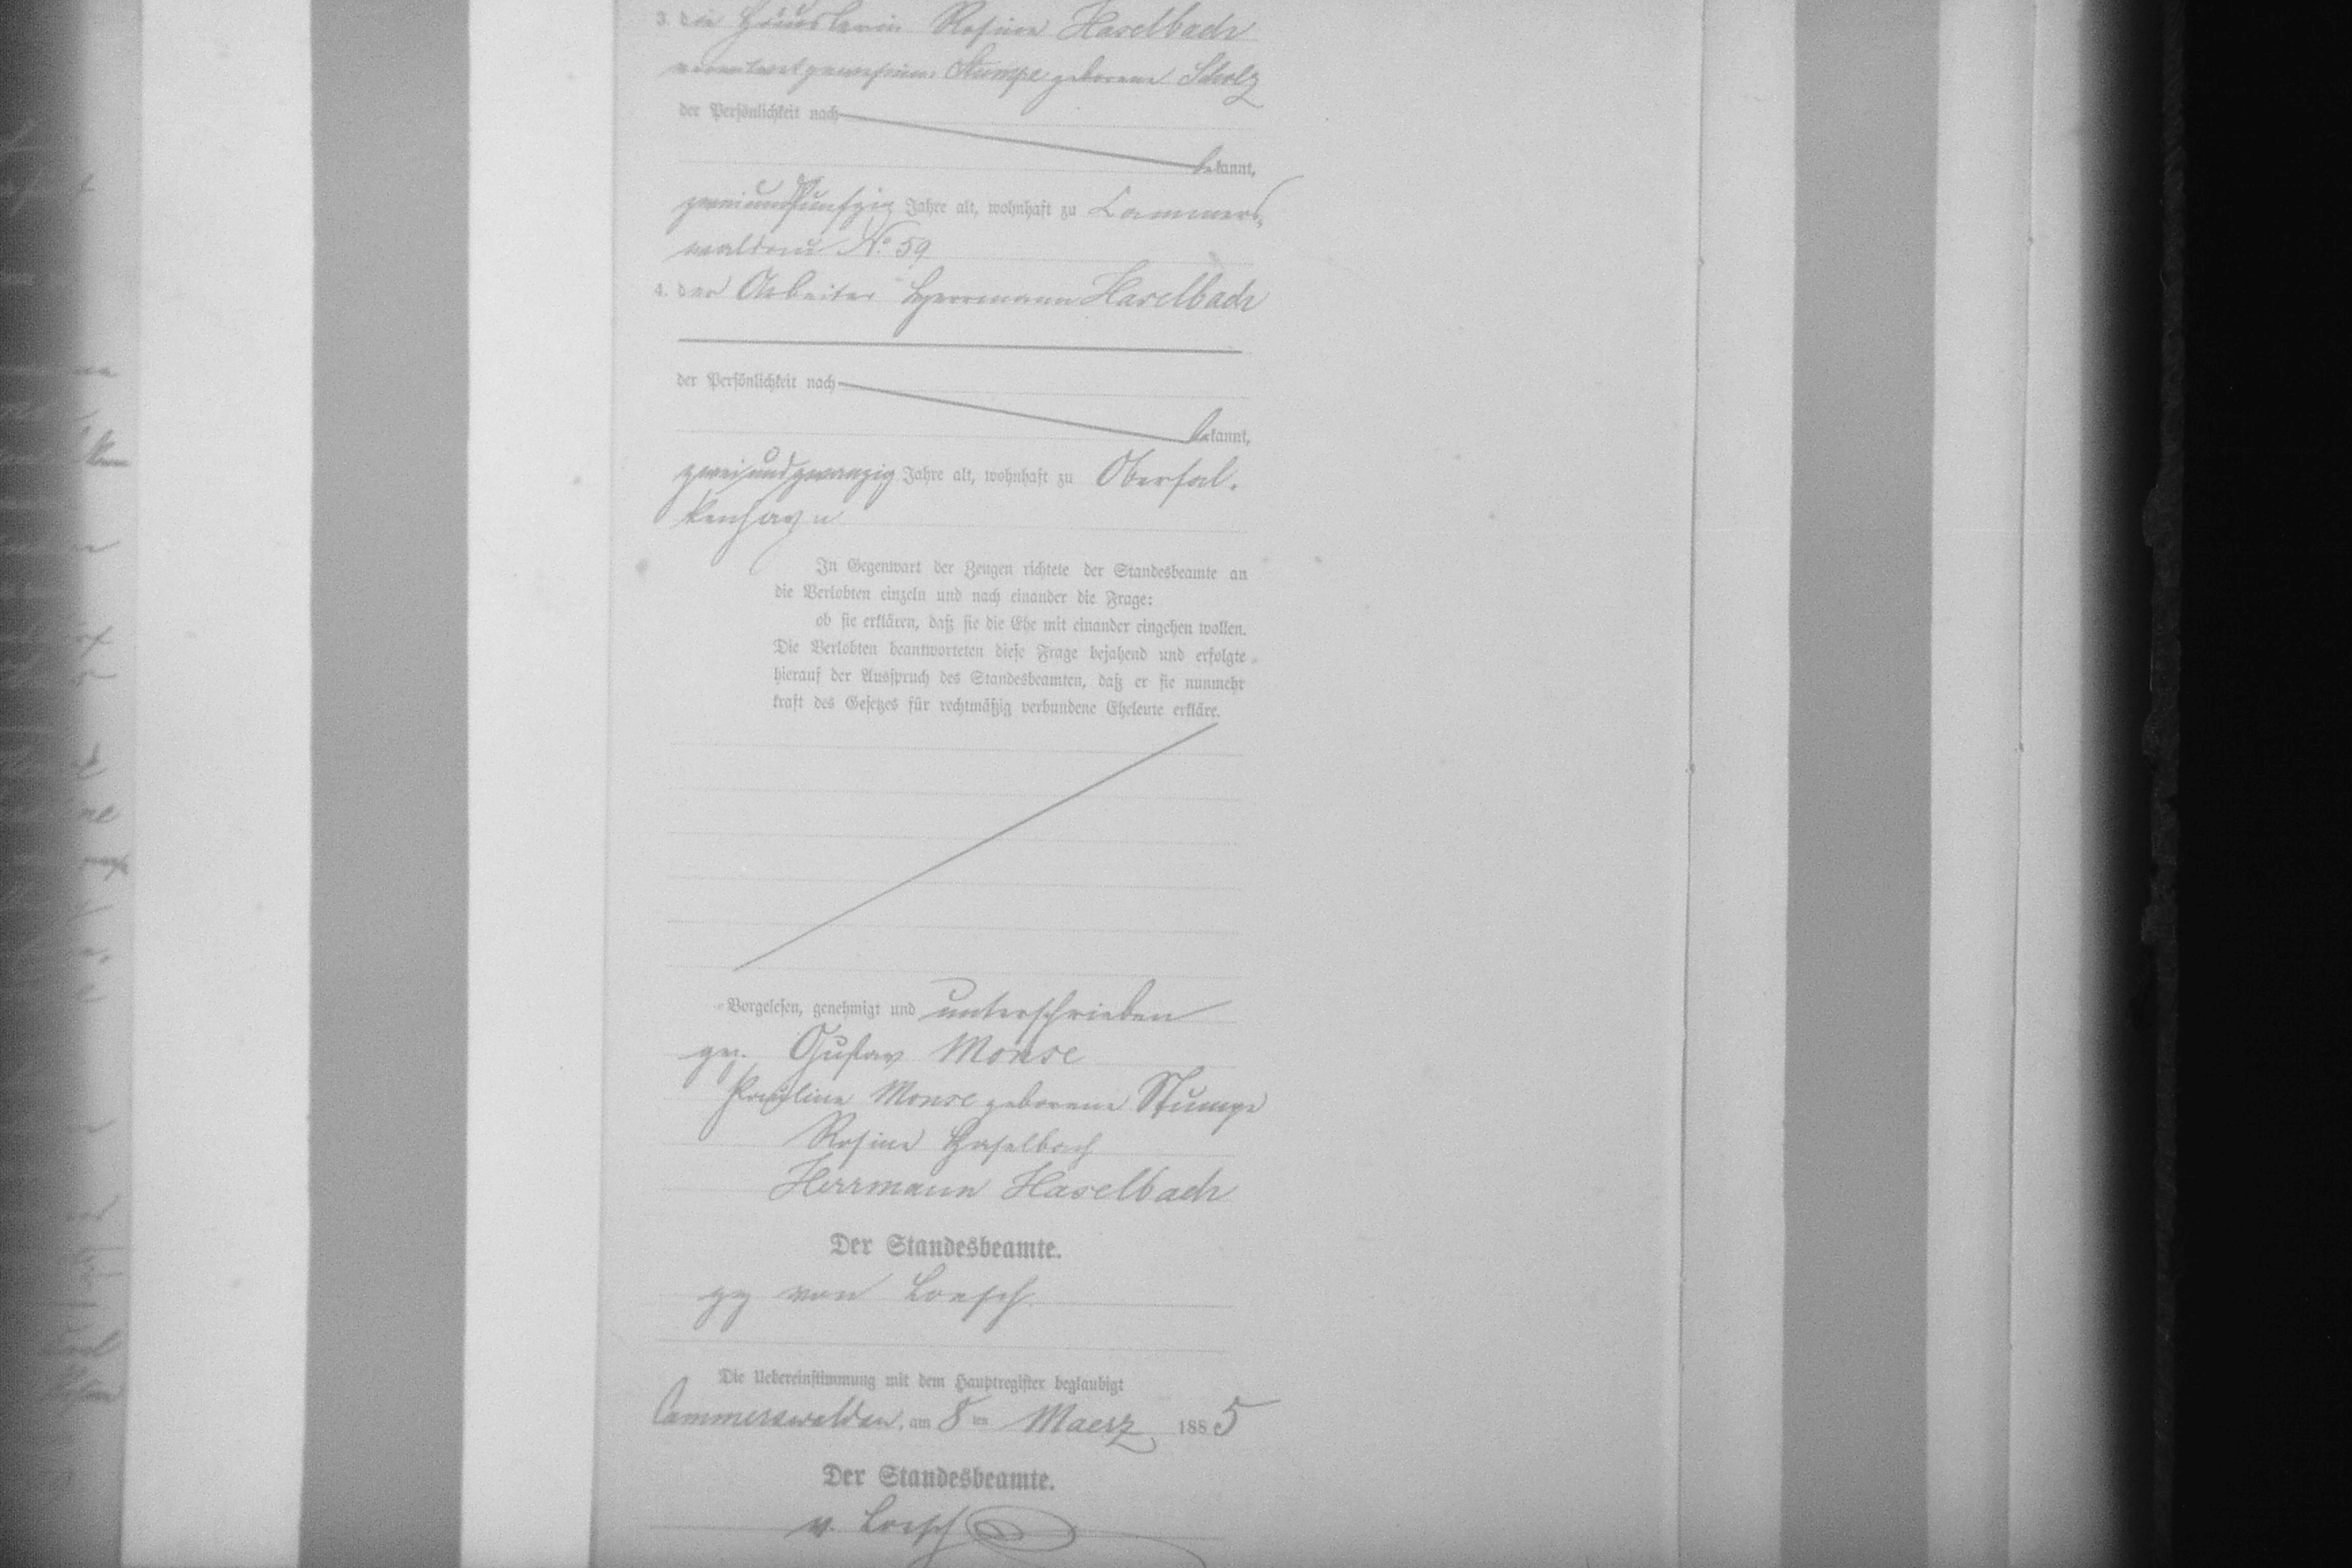 3. die Häuslerin Rosine Haselbach
verwittwet gewesene Stumpe geborene Scholz
der Persönlichkeit nach
bekannt,
zweiundfünfzig Jahre alt, wohnhaft zu Cammers-
waldau No. 59
4. der Arbeiter Herrmann Haselbach
der Persönlichkeit nach
bekannt,
zweiundzwanzig Jahre alt, wohnhaft zu Oberfal-
kenhayn
In Gegenwart der Zeugen richtete der Standesbeamte an
die Verlobten einzeln und nach einander die Frage:
ob sie erklären, daß sie die Ehe mit einander eingehen wollen.
Die Verlobten beantworteten diese Frage bejahend und erfolgte
hierauf der Ausspruch des Standesbeamten, daß er sie nunmehr
kraft des Gesetzes für rechtmäßig verbundene Eheleute erkläre.
Vorgelesen, genehmigt und unterschrieben
gez. Gustav Monse
Pauline Monse geborene Stumpe
Rosine Haselbach
Herrmann Haselbach
Der Standesbeamte.
gz von Loesch
Die Uebereinstimmung mit dem Hauptregister beglaubigt
Cammerswaldau, am 8ten Maerz 1885
Der Standesbeamte.
v. Loesch